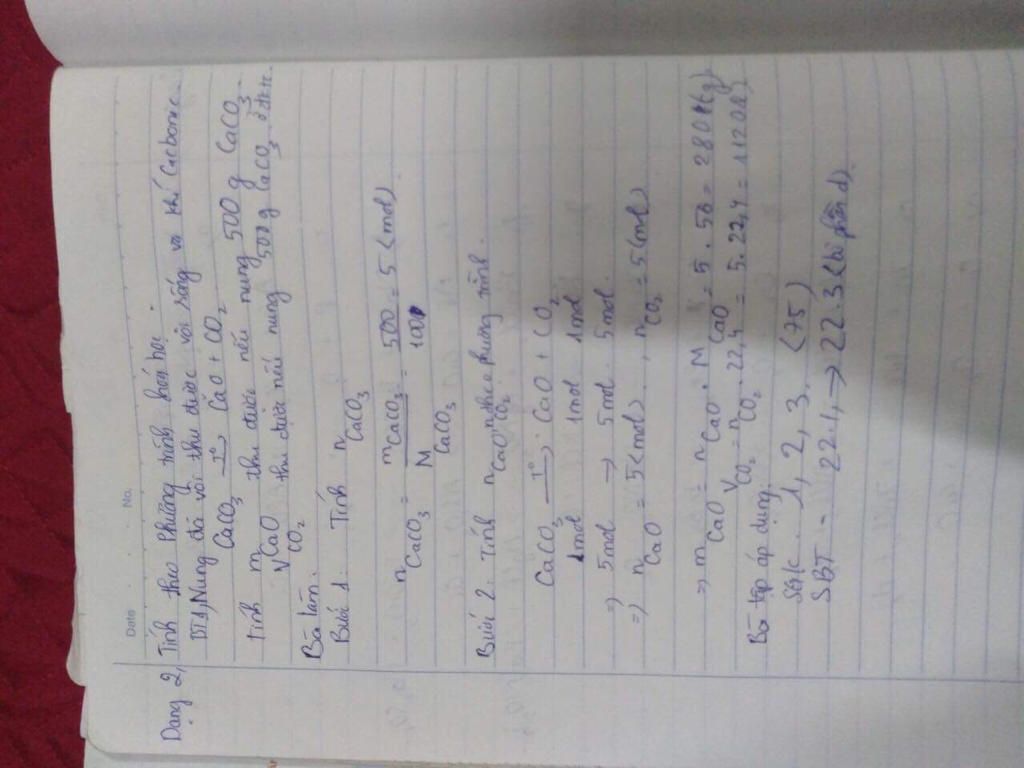 Date . No.
Dạng 2, Tính theo Phương trình hoá học.
BT1, Nung đá vôi thu được vôi sống và khí Cacbonic.
CaCO3 —t°→ CaO + CO2
Tính mCaO thu được nếu nung 500g CaCO3
VCO2 thu được nếu nung 500g CaCO3 ở đktc.
Bài làm:
Bước 1: Tính nCaCO3
nCaCO3 = mCaCO3/MCaCO3 = 500/100 = 5 (mol)
Bước 2. Tính nCaO, nCO2 theo phương trình.
CaCO3 —t°→ CaO + CO2
1mol 1mol 1mol
=> 5mol → 5mol 5mol
=) nCaO = 5 (mol), nCO2 = 5 (mol)
=> mCaO = nCaO . MCaO = 5 . 56 = 280 (g)
VCO2 = nCO2 . 22,4 = 5. 22,4 = 112 (l)
Bài tập áp dụng:
SGK 1, 2, 3. (75)
SBT - 22.1, → 22.3 (bỏ phần d)